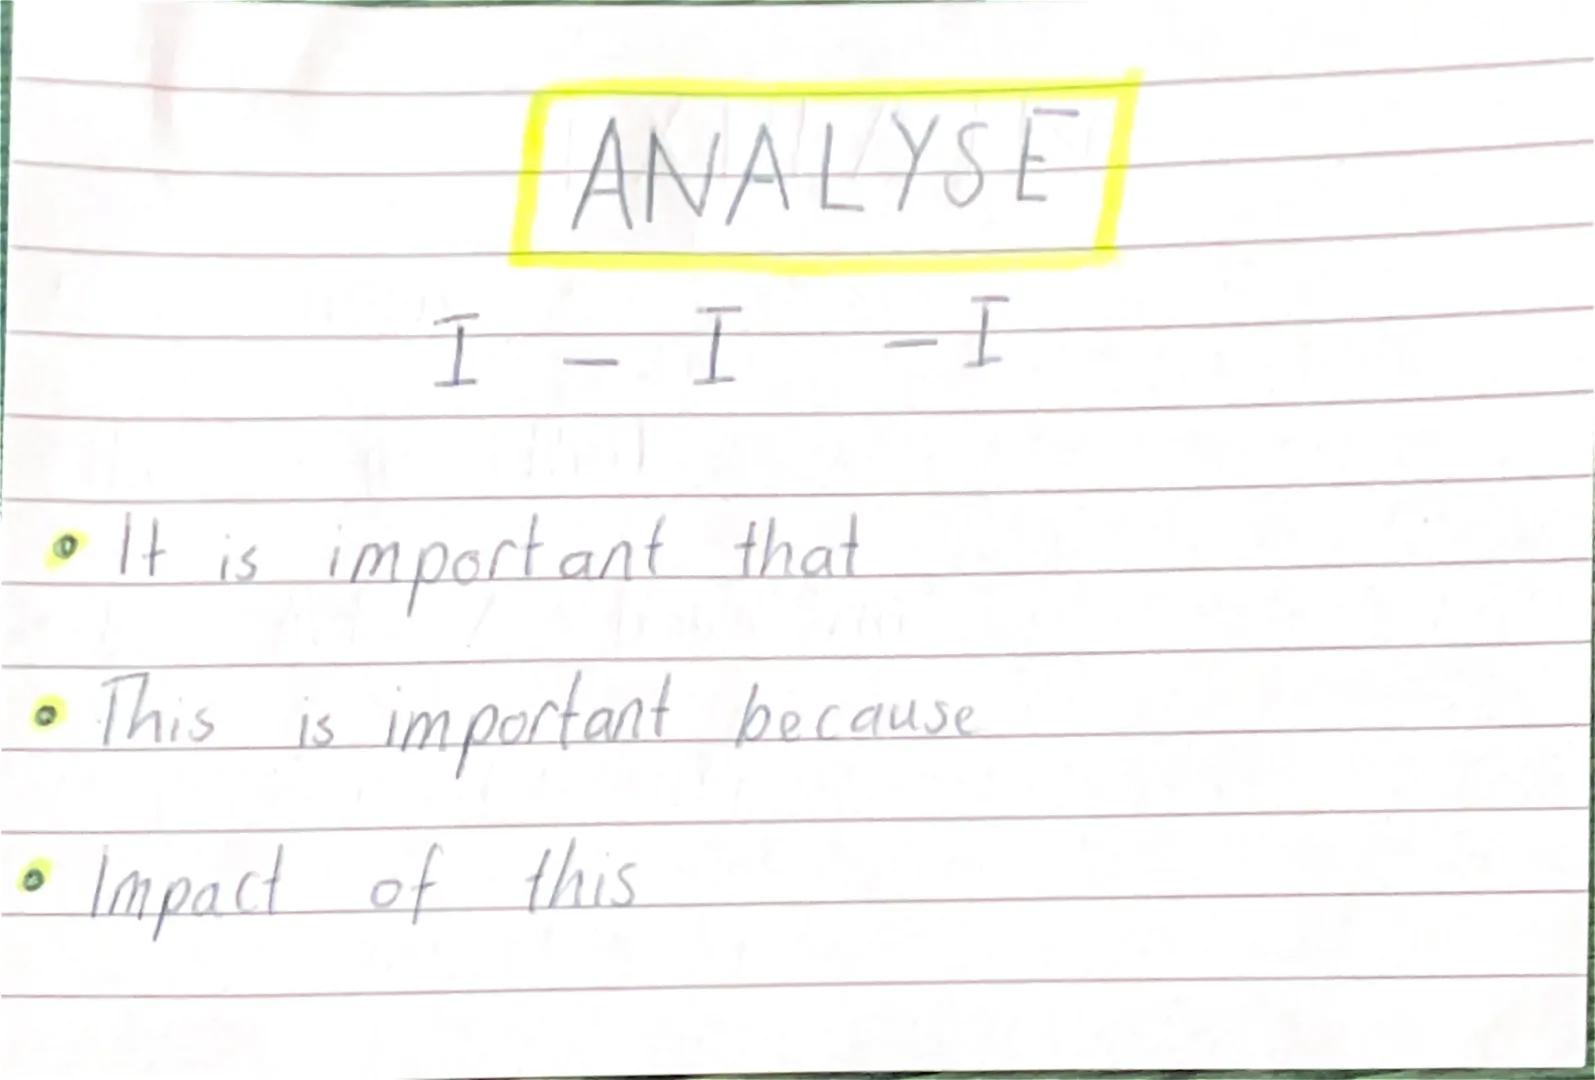 ANALYSE
I - I - I
• It is important that
• This is important because
• Impact of this